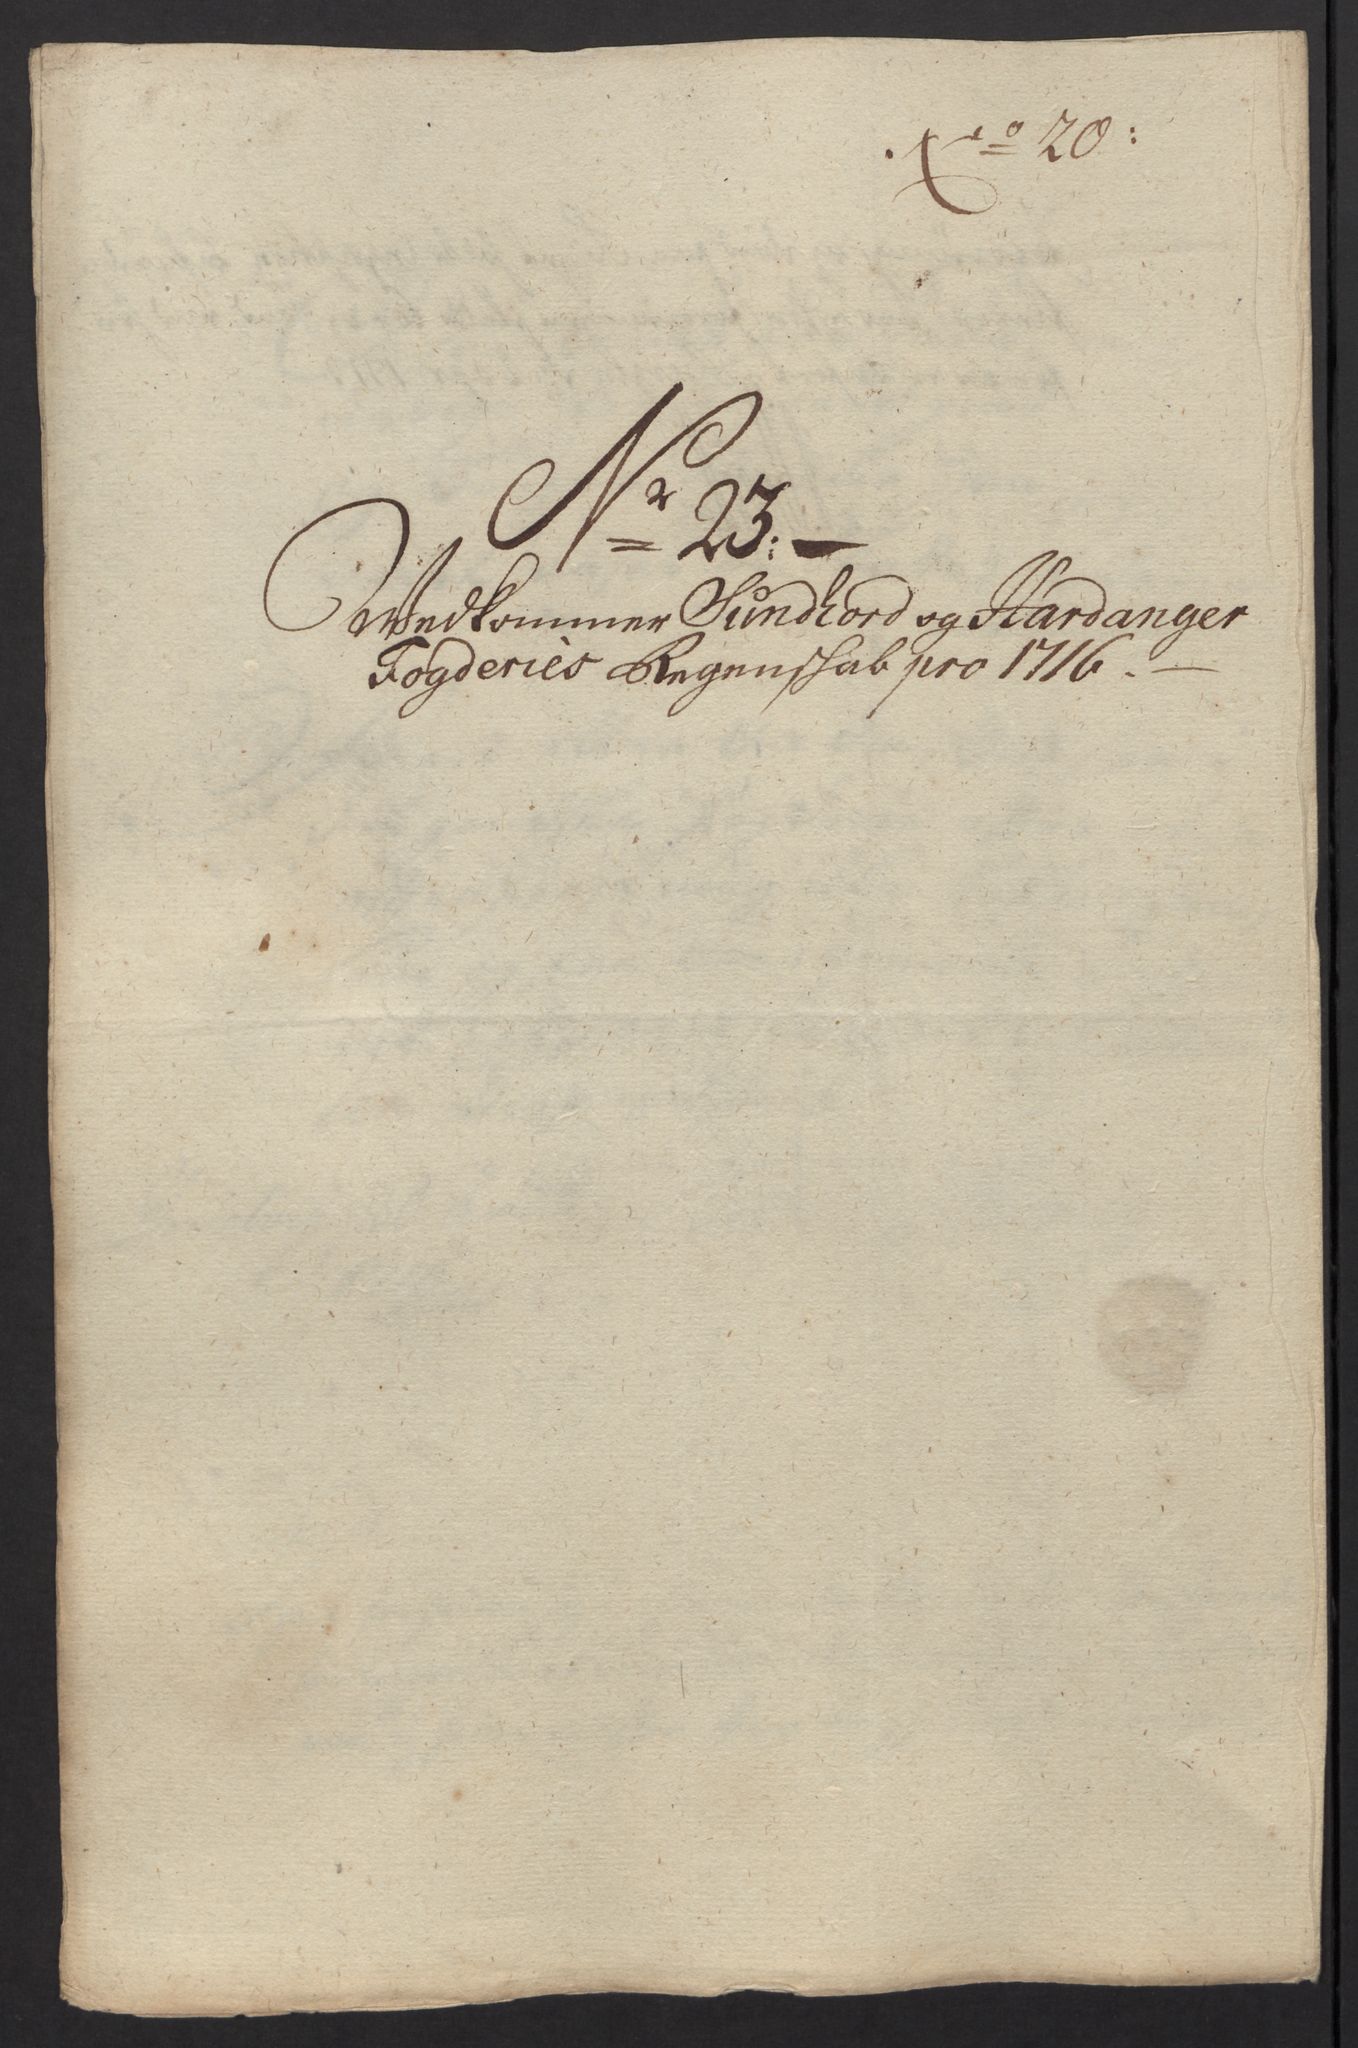 20:
Nr 23:
Vedkommer Sundhord og Hardanger
Fogderies Regenskab pro 1716.